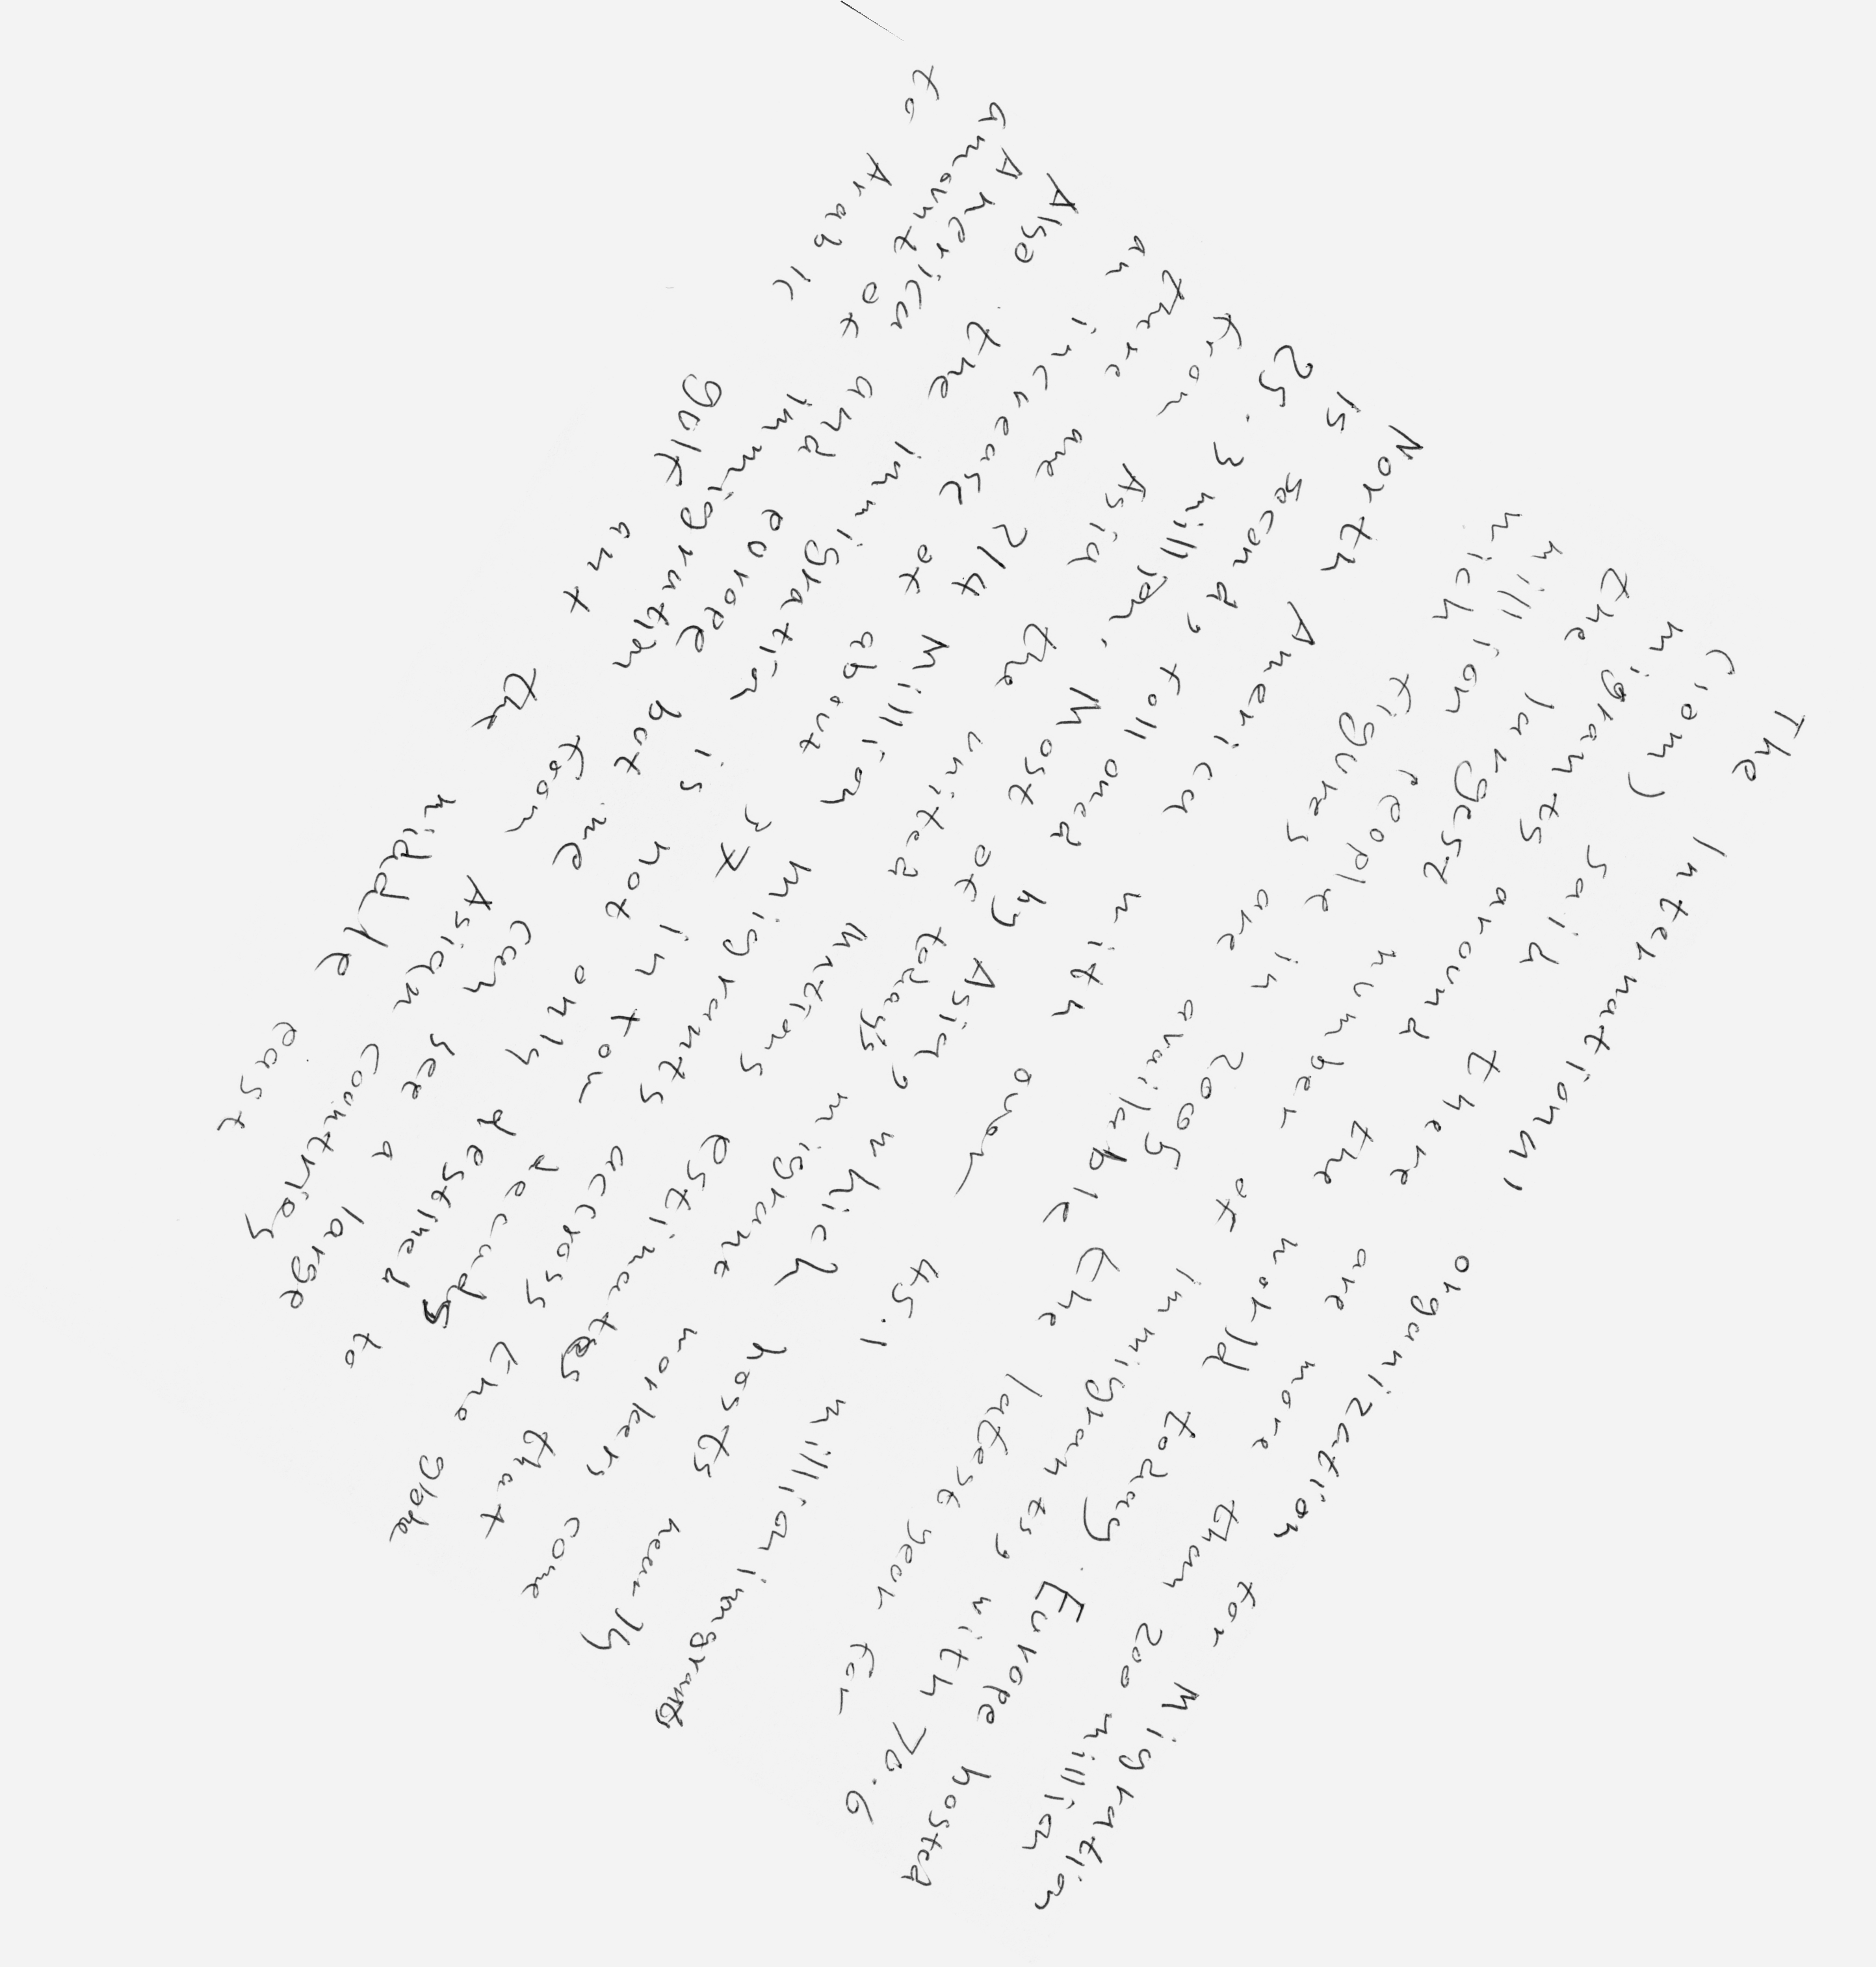 The International organization for Migration
(iom) said there are more than 200 million
migrants around the world today. Europe hosted
the largest number of immigrants, with 70.6
million people in 2005 the latest year for
wich figures are available
North America with over 45.1 million immigrants
is second, followed by Asia, which hosts nearly
25.3 million. Most of todays migrant workers come
from Asia the united Mutions estimates that
there are 214 Million Migrants accross the globe
an increase of about 37 in tow decads
Also the immigration is not only destined to
America and eorope but we can see a large
amount of immigration from Asian countries
to Arab ic gulf ant the middle east